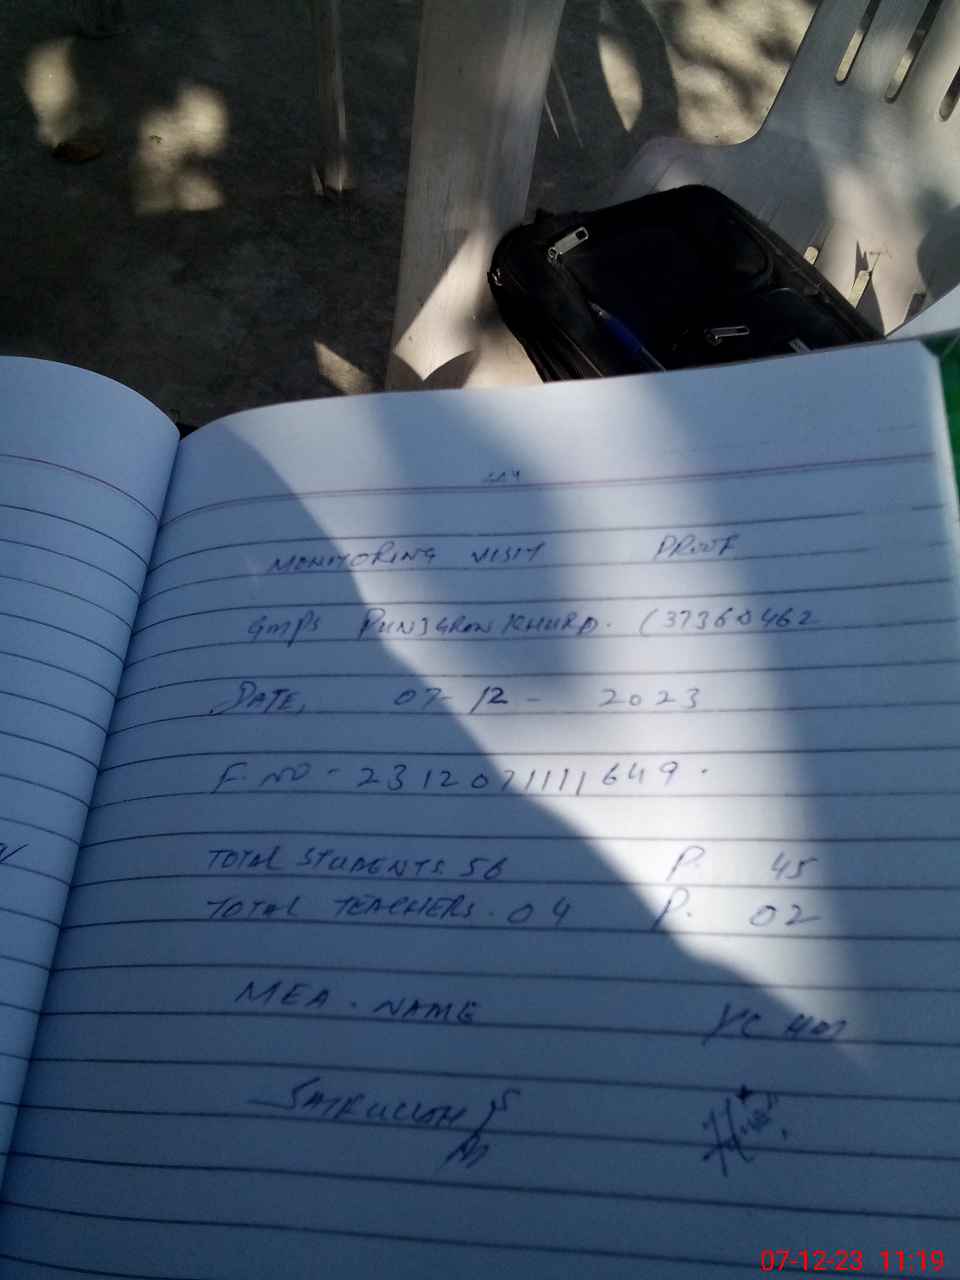 MONITORING VISIT PROOF
GMPS PUNJGRON KHURD. (37360462
DATE, 07-12-2023
F.NO-2312071111649.
TOTAL STUDENTS. 56 P. 45
TOTAL TEACHERS. 04 P. 02
MEA. NAME
07-12-23 11:19